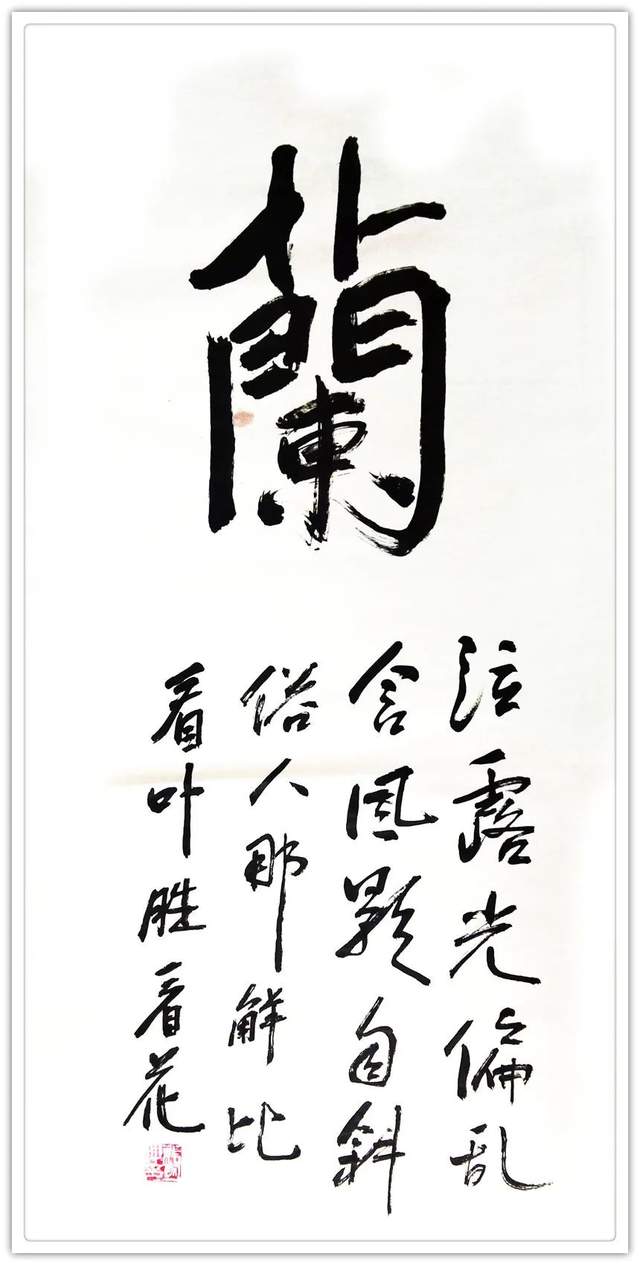 蘭
泣露光偏乱
含风影自斜
俗人那解比
看叶胜看花